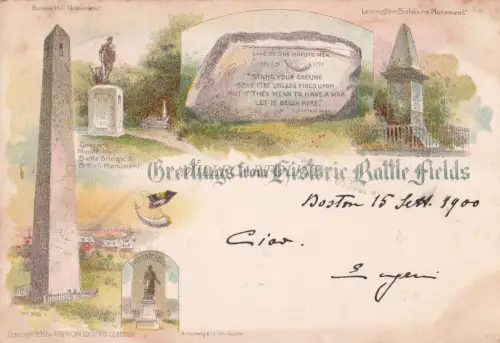 Bunker Hill Monument.
Lexington Soldiers Monument
LINE OF THE MINUTE MEN
APRIL 19 1775
"STAND YOUR GROUND
DON'T FIRE UNLESS FIRED UPON
BUT IF THEY MEAN TO HAVE A WAR
LET IT BEGIN HERE."
Concord
Minute Man
Battle Bridge &
British Monument
Greetings from Historic Battle Fields
Boston 15 Sett. 1900
Ciao.
Eugeni
Copyright 1898 by AMERICAN SOUVENIR CO. BOSTON